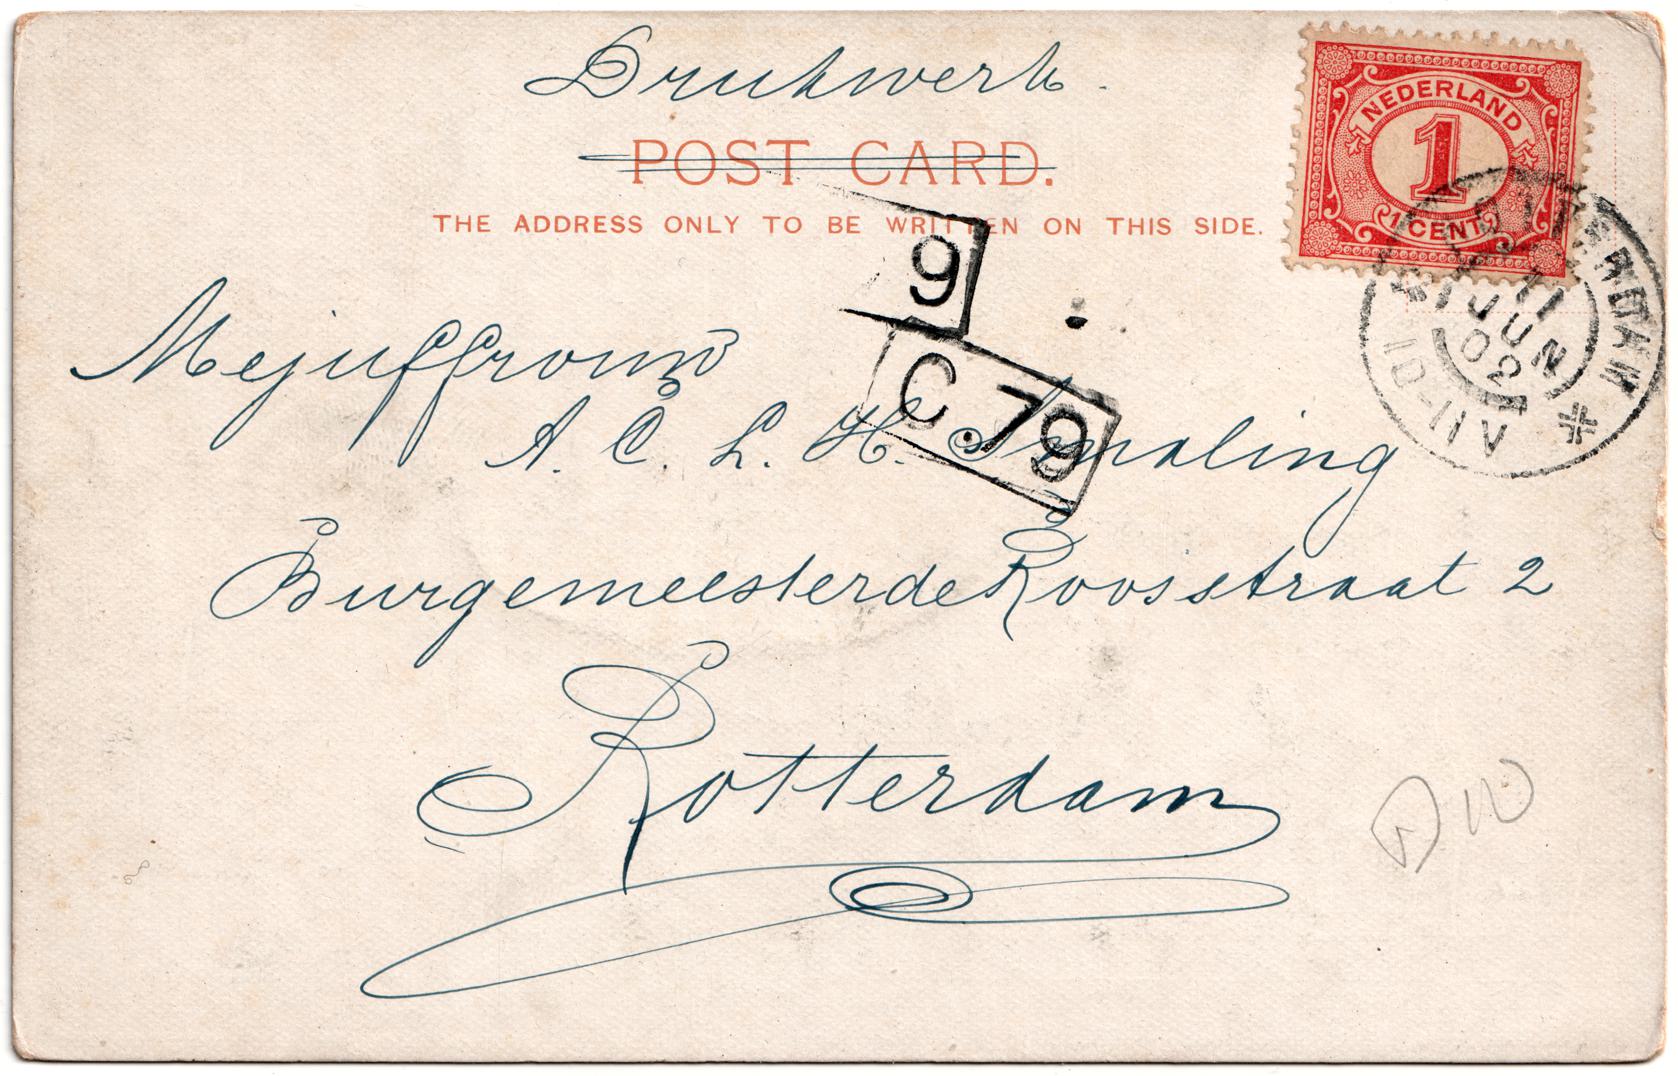 Drukwerk.
POST CARD.
THE ADDRESS ONLY TO BE WRITTEN ON THIS SIDE.
NEDERLAND
1
1 CENT 1
11 JUN 02
9
C.79
Mejuffrouw
A. C. L. H. Smaling
Burgemeester de Roosstraat 2
Rotterdam